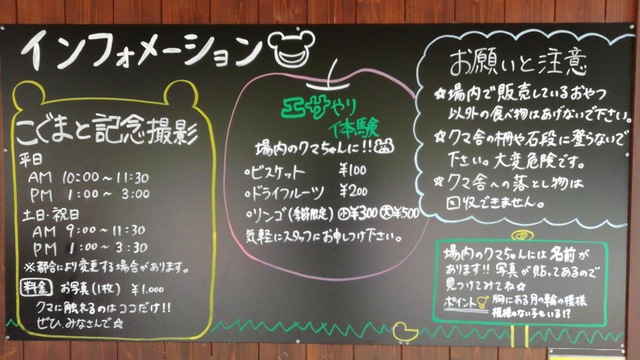 インフォメーション
こぐまと記念撮影
平日
AM 10:00〜11:30
PM 1:00〜3:00
土日・祝日
AM 9:00〜11:30
PM 1:00〜3:30
※都合により変更する場合があります。
料金 お写真(1枚) ¥1.000
クマに触れるのはココだけ!!
ぜひ、みなさんで☆
エサやり
体験
場内のクマちゃんに!!
・ビスケット ¥100
・ドライフルーツ ¥200
・リンゴ(季節限定) 小¥300 大¥500
気軽にスタッフにお申しつけ下さい。
お願いと注意
☆場内で販売しているおやつ
以外の食べ物はあげないで下さい。
☆クマ舎の柵や石段に登らないで
下さい。大変危険です。
☆クマ舎への落とし物は
回収できません。
場内のクマちゃんには名前が
あります!!写真が貼ってあるので
見つけてみてね☆
ポイント 胸にある月の輪の模様
模様のない子もいる!?